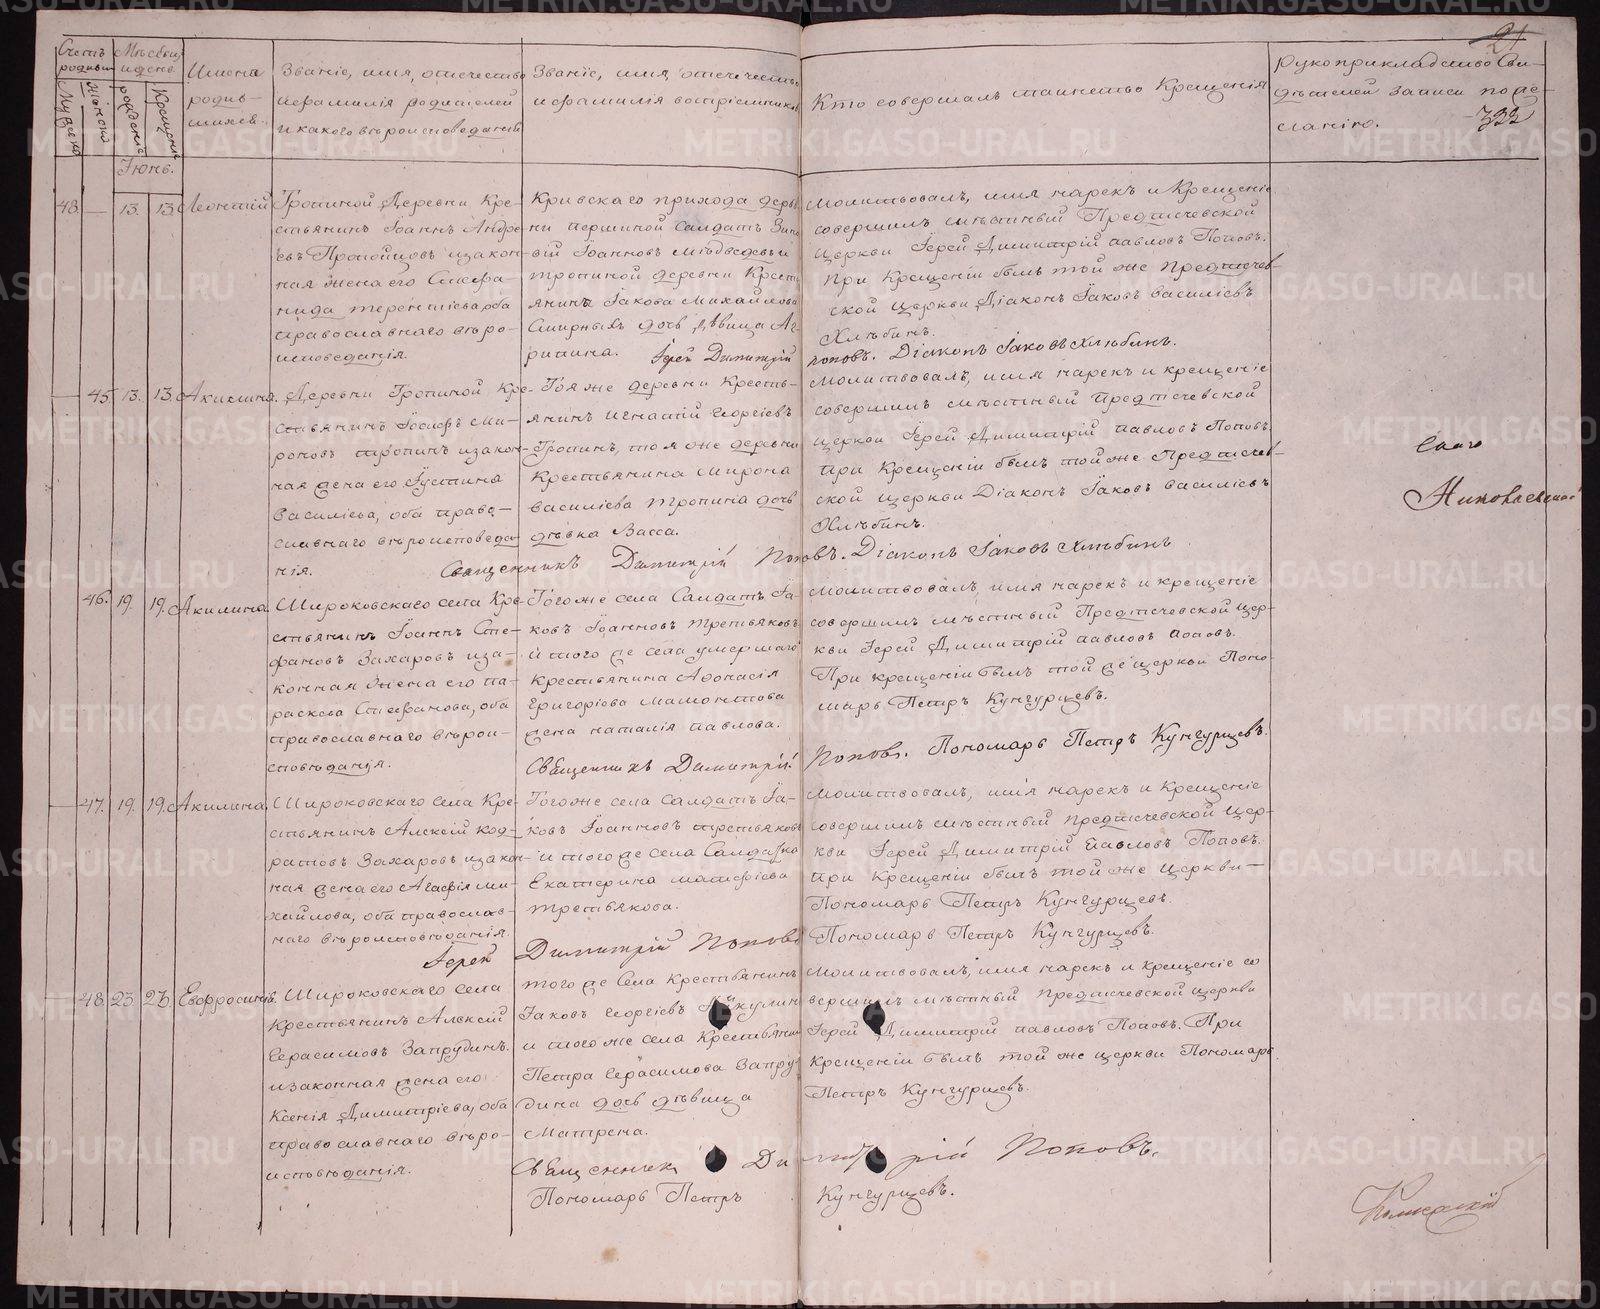 21
322
Счетъ родивш.
Мужеска
Женска
Мѣсяцъ и день
рожденія
Крещенія
Имена
родив-
шихся.
Званіе, имя, отечество
и фамилія родителей
и какого вѣроисповеданія
Званіе, имя отечество
и фамилія воспріемниковъ
Кто совершалъ таинство Крещенія
Рукоприкладство Сви-
дѣтелей записи по же-
ланію.
Іюнь.
43. — 13. 13. Леонтій
Тропиной Деревни Кре-
стьянинъ Іоаннъ Андре-
евъ изакон-
ная жена его Стефа-
нида терентіева оба
православнаго вѣро-
исповеданія.
Кривскаго прихода дерев-
ни першиной Солдатъ Зино-
вій Іоанновъ Мѣдведевъ и
тропиной деревни Кресть-
янина Іакова Михайлова
Смирныхъ дочь дѣвица Аг-
рипина.
Молитвовалъ, имя нарекъ и Крещеніе
совершилъ мѣстный Предтечевской
церкви Іерей Димитрій павловъ Поповъ.
При Крещеніи былъ той же предтечев-
ской церкви Діаконъ Іаковъ василіевъ
Хлѣбинъ.
Іерей Димитрій поповъ. Діаконъ Іаковъ Хлѣбинъ.
— 45. 13. 13. Акилина.
Деревни Тропиной Кре-
стьянинъ Іосифъ Ми-
роновъ тропинъ изакон-
ная жена его Іустина
Василіева, оба право-
славнаго вѣроисповеда-
нія.
Тояже деревни Кресть-
янинъ Игнатій Георгіевъ
Тропинъ, тоя же деревни
Крестьянина Мирона
Василіева Тропина дочь
дѣвка Васса.
Молитвовалъ, имя нарекъ и крещеніе
совершилъ мѣстный предтечевской
церкви Іерей Димитрій павловъ Поповъ.
при Крещеніи былъ той же Предтечев-
ской церкви Діаконъ Іаковъ василіевъ
Хлѣбинъ.
Священникъ Димитрій Поповъ. Діаконъ Іаковъ Хлѣбинъ
46. 19. 19. Акилина.
Широковскаго села Кре-
стьянинъ Іоаннъ Сте-
фановъ Захаровъ иза-
конная жена его па-
раскева Стефанова, оба
православнаго вѣрои-
споведанія.
Тогоже села Солдатъ Іа-
ковъ Іоанновъ третьяковъ
и того же села умершаго
Крестьянина Афонасія
Григоріева Мамонтова
жена наталія павлова.
Молитвовалъ имя нарекъ и крещеніе
совершилъ мѣстный Предтечевской цер-
кви Іерей Димитрій павловъ поповъ.
При крещеніи былъ той же церкви Поно-
марь Петръ Кунгурцевъ.
Священникъ Димитрій Поповъ. Пономарь Петръ Кунгурцевъ.
— 47. 19. 19. Акилина.
Широковскаго села Кре-
стьянинъ Алексій код-
ратовъ Захаровъ изакон-
ная жена его Агафія ми-
хайлова, оба православ-
наго вѣроисповѣданія.
Тогоже села солдатъ Іа-
ковъ Іоанновъ третьяковъ
и того же села Солдатка
Екатерина матфіева
третьякова.
Молитвовалъ, имя нарекъ и Крещеніе
совершилъ мѣстный предтечевской Цер-
кви Іерей Димитрій павловъ Поповъ.
при крещеніи былъ той же церкви —
Пономарь Петръ Кунгурцевъ.
Іерей Димитрій Поповъ Пономарь Петръ Кунгурцевъ.
48. 23. 23.
Широковскаго села
Крестьянинъ Алексій
Герасимовъ Запрудинъ.
изаконная жена его
Ксенія Димитріева, оба
православнаго вѣро-
исповѣданія.
того же Села Крестьянинъ
Іаковъ Георгіевъ
и того же села Крестьянина
Петра Герасимова Запру-
дина дочь дѣвица
Матрена.
Молитвовалъ, имя нарекъ и крещеніе со
вершилъ мѣстный предтечевской церкви
Іерей Димитрій павловъ Поповъ. При
крещеніи былъ той же церкви Пономарь
Петръ Кунгурцевъ.
Священникъ Димитрій Поповъ.
Пономарь Петръ Кунгурцевъ.
METRIKI.GASO-URAL.RU